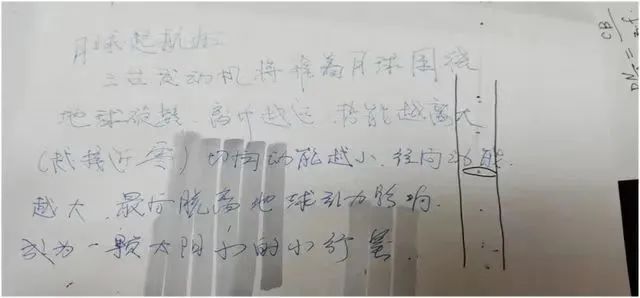 月球起航
三台发动机将推着月球围绕
地球旋转,离心越远,势能越大
(越接近零)切向动能越小,径向动能
越大,最后脱离地球引力影响,
成为一颗太阳系的小行星.
CB